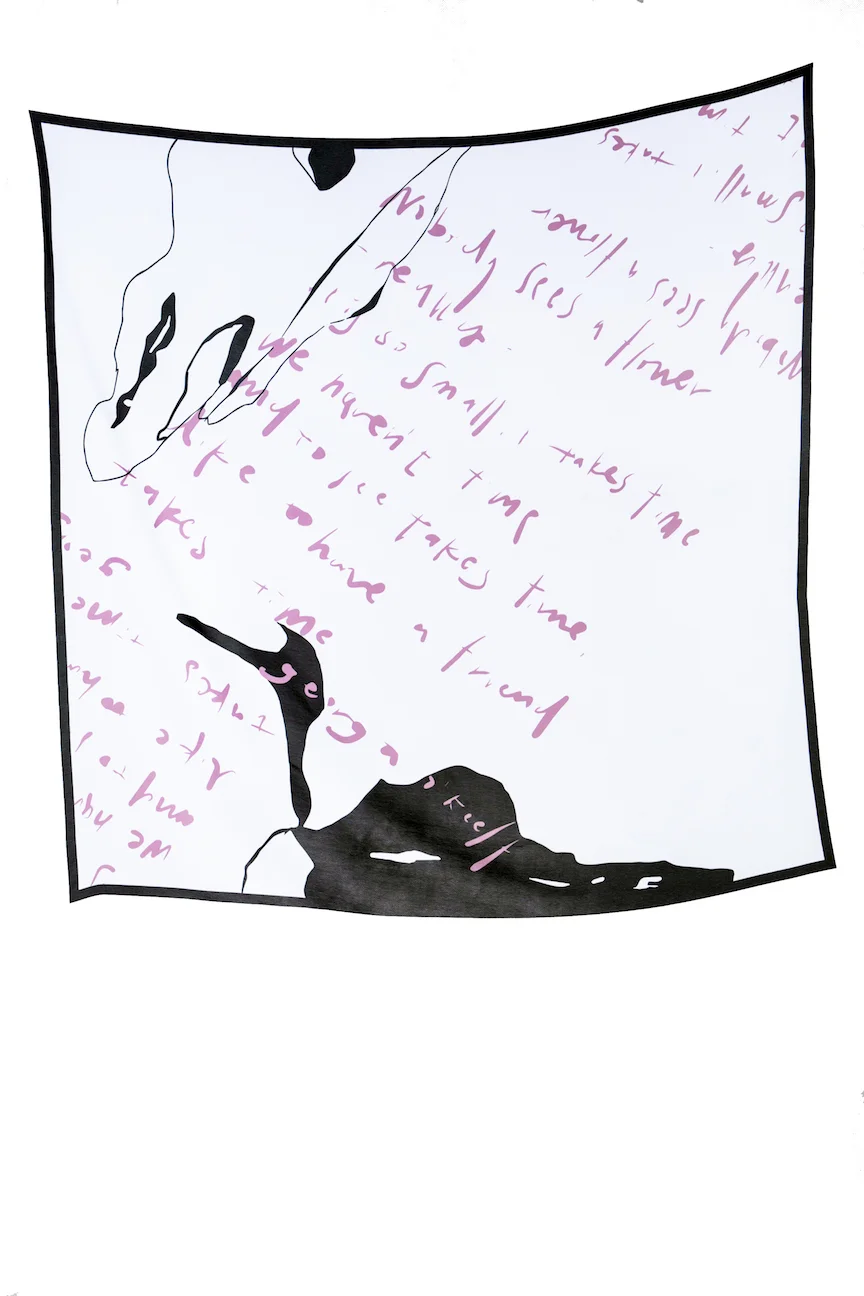 Nobody sees a flower
really
it is so small it takes time
we haven't time
and to see takes time,
like to have a friend
takes time
georgia o'keeff
small it takes
really
Nobody sees a flower
takes time
like to ha
and to
we